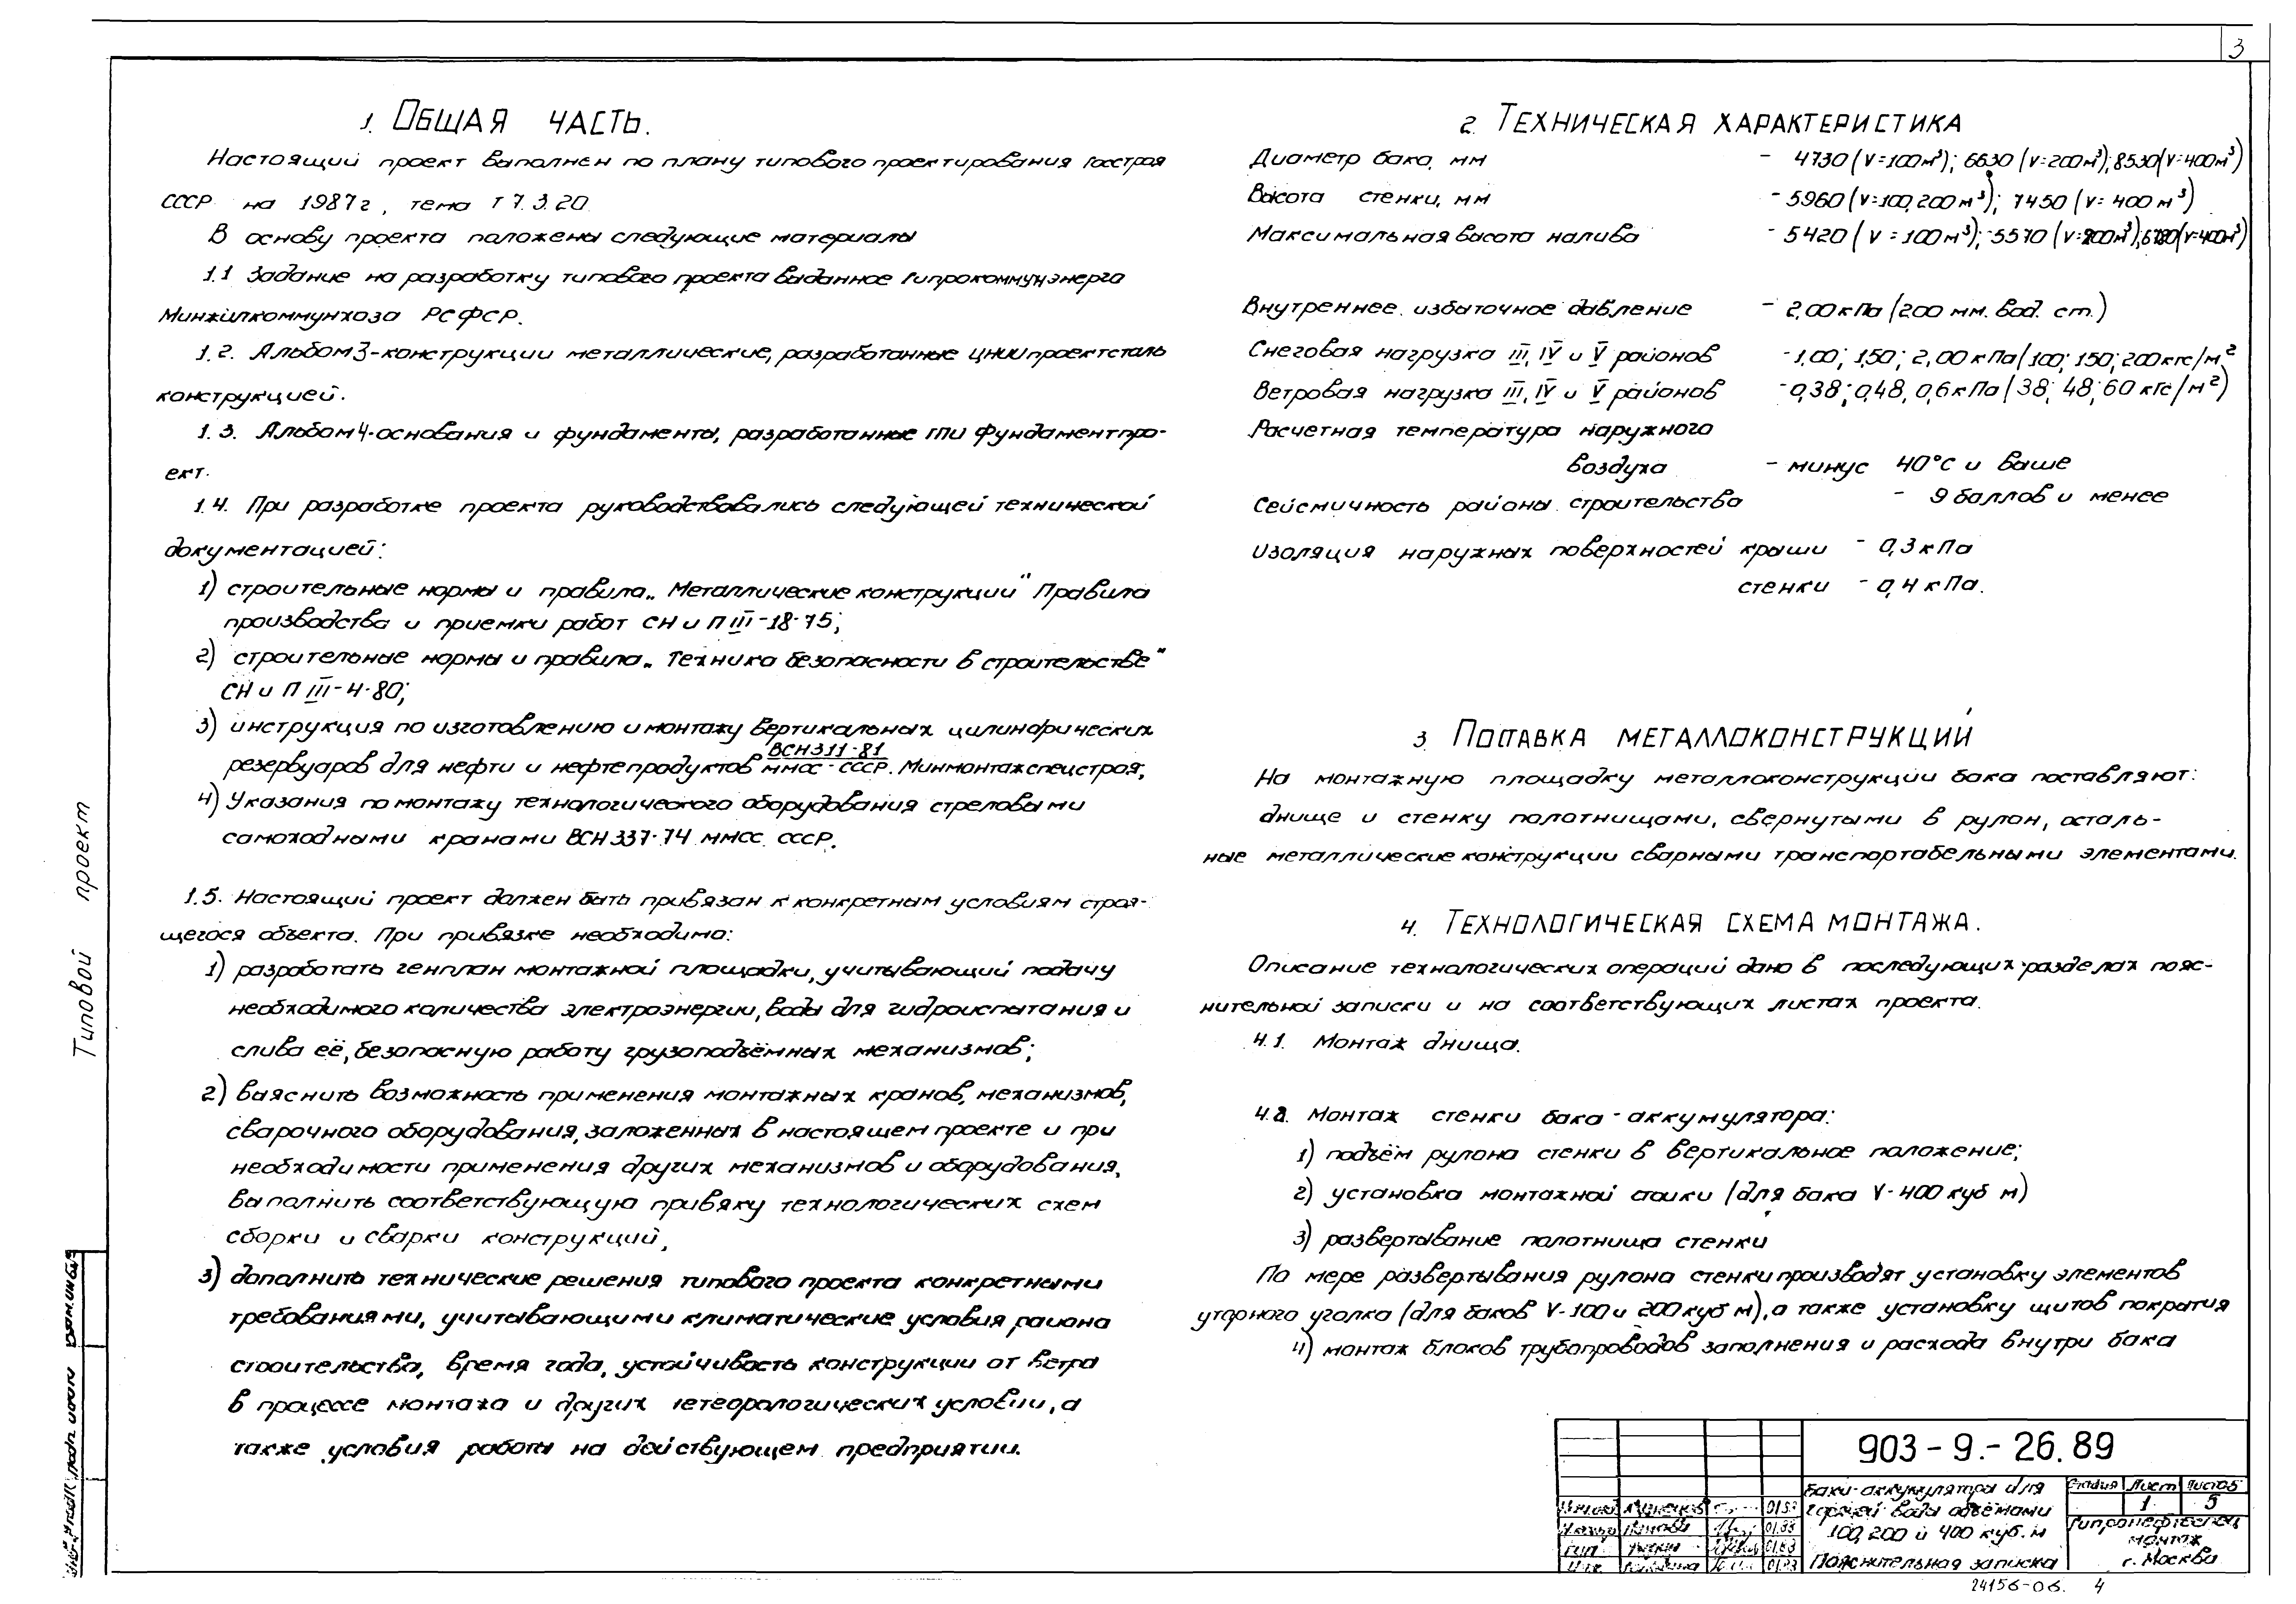 3
1. Общая часть.
Настоящий проект выполнен по плану типового проектирования Госстроя
СССР на 1987г, тема Т 7.3.20.
В основу проекта положены следующие материалы
1.1 Задание на разработку типового проекта выданное Гипрокоммунэнерго
Минжилкоммунхоза РСФСР.
1.2. Альбом 3-конструкции металлические, разработанные ЦНИИпроектсталь
конструкцией.
1.3. Альбом 4-основания и фундаменты, разработанные ГПИ Фундаментпро-
ект.
1.4. При разработке проекта руководствовались следующей технической
документацией:
1) строительные нормы и правила „Металлические конструкции" Правила
производства и приемки работ СН и П III-18-75;
2) строительные нормы и правила „Техника безопасности в строительстве"
СН и П III-4-80;
3) инструкция по изготовлению и монтажу вертикальных цилиндрических
резервуаров для нефти и нефтепродуктов ВСН311-81 ММСС-СССР. Минмонтажспецстроя;
4) Указания по монтажу технологического оборудования стреловыми
самоходными кранами ВСН 337-74 ММСС СССР.
1.5. Настоящий проект должен быть привязан к конкретным условиям строя-
щегося объекта. При привязке необходимо:
1) разработать генплан монтажной площадки, учитывающий подачу
необходимого количества электроэнергии, воды для гидроиспытания и
слива её, безопасную работу грузоподъёмных механизмов;
2) выяснить возможность применения монтажных кранов, механизмов,
сварочного оборудования, заложенных в настоящем проекте и при
необходимости применения других механизмов и оборудования,
выполнить соответствующую привяку технологических схем
сборки и сварки конструкций,
3) дополнить технические решения типового проекта конкретными
требованиями, учитывающими климатические условия района
строительства, время года, устойчивость конструкции от ветра
в процессе монтажа и других метеорологических условий, а
также условия работы на действующем предприятии.
2. Техническая характеристика
Диаметр бака, мм - 4730 (V=100м³); 6630 (V=200м³); 8530(V=400м³)
Высота стенки, мм - 5960 (V=100,200 м³); 7450 (V= 400 м³)
Максимальная высота налива - 5420 (V = 100м³); -5570 (V=200м³); 6780(V=400м³)
Внутреннее избыточное давление - 2,00 кПа (200 мм. вод. ст.)
Снеговая нагрузка III, IV и V районов - 1,00; 1,50; 2,00 кПа(100; 150; 200 кгс/м²
Ветровая нагрузка III, IV и V районов - 0,38; 0,48, 0,6 кПа(38; 48; 60 кгс/м²)
Расчетная температура наружного
воздуха - минус 40°С и выше
Сейсмичность районы строительства - 9 баллов и менее
Изоляция наружных поверхностей крыши - 0,3 кПа
стенки - 0,4 кПа.
3. Поставка металлоконструкций
На монтажную площадку металлоконструкции бака поставляют:
днище и стенку полотнищами, свернутыми в рулон, осталь-
ные металлические конструкции сварными транспортабельными элементами.
4. Технологическая схема монтажа.
Описание технологических операций дано в последующих разделах пояс-
нительной записки и на соответствующих листах проекта.
4.1. Монтаж днища.
4.2. Монтаж стенки бака-аккумулятора:
1) подъём рулона стенки в вертикальное положение;
2) установка монтажной стойки (для бака V-400 куб м)
3) развертывание полотнища стенки
По мере развертывания рулона стенки производят установку элементов
уторного уголка (для баков V-100 и 200 куб м), а также установку щитов покрытия
4) монтаж блоков трубопроводов заполнения и расхода внутри бака
Типовой проект
903-9.-26.89
Баки-аккумуляторы для
горячей воды объёмами
100, 200 и 400 куб. м
Пояснительная записка
Стадия Лист Листов
1 5
Гипронефтеспец
монтаж
г. Москва
24156-06. 4